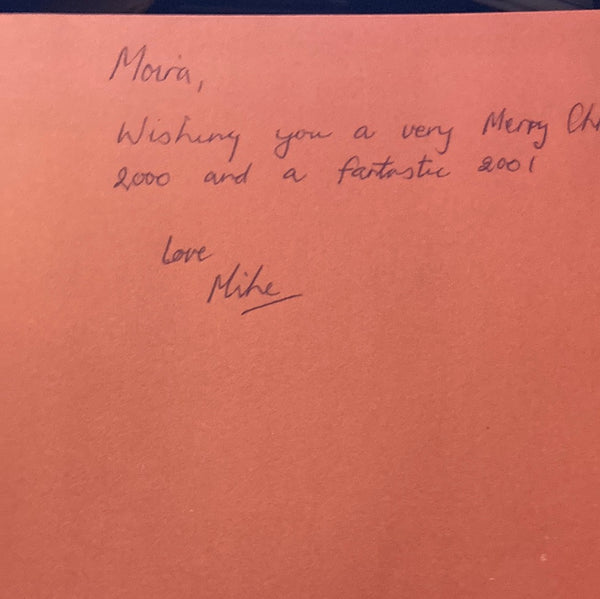 Moira,
Wishing you a very Merry Ch
2000 and a fantastic 2001
Love
Mike